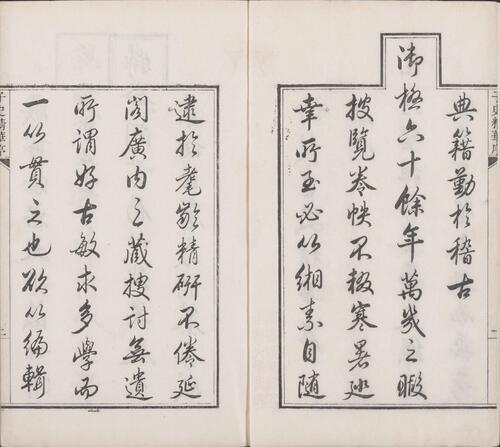 典籍勤於稽古
御極六十餘年萬幾之暇
披覽卷帙不輟寒暑巡
幸所至必以緗素自隨
逮於耄齡精研不倦延
閣廣內之藏搜討無遺
所謂好古敏求多學而
一以貫之也欲以編輯
子史精華序